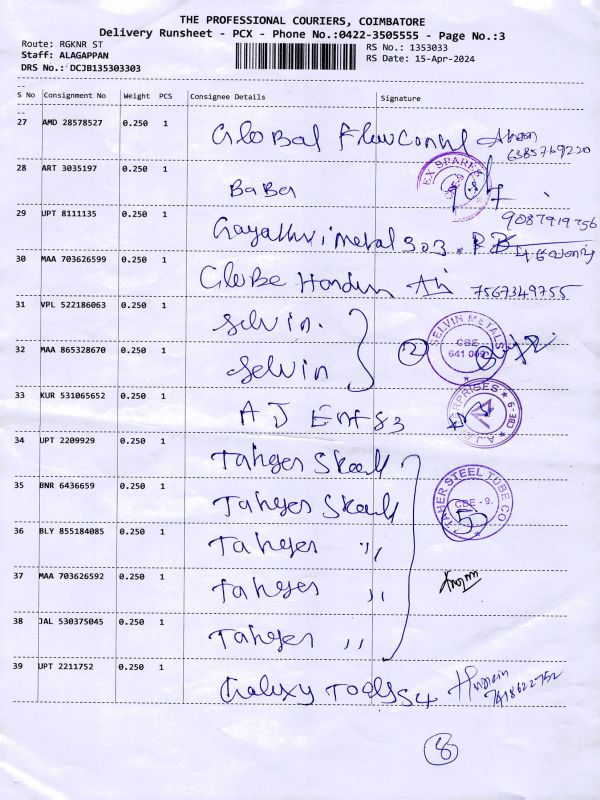 THE PROFESSIONAL COURIERS, COIMBATORE
Delivery Runsheet - PCX - Phone No.:0422-3505555 - Page No.:3
Route: RGKNR ST
Staff: ALAGAPPAN
DRS No.: DCJB135303303
RS No.: 1353033
RS Date: 15-Apr-2024
S No Consignment No Weight PCS Consignee Details Signature
27 AMD 28578527 0.250 1 Global
6385769220
28 ART 3035197 0.250 1 Baba EX SPARES
29 UPT 8111135 0.250 1 Gayathri metal 303
9087919756
30 MAA 703626599 0.250 1 Globe 7567349755
31 VPL 522186063 0.250 1 Selvin.
32 MAA 865328670 0.250 1 Selvin 2 SELVIN METALS CBE 641 009
33 KUR 531065652 0.250 1 AJ Ent 83 A.J. ENTERPRISES CBE-9
34 UPT 2209929 0.250 1 Taher
35 BNR 6436659 0.250 1 Taher TAHER STEEL TUBE CO CBE - 9. 5
36 BLY 855184085 0.250 1 Taher ,,
37 MAA 703626592 0.250 1 Taher ,,
38 JAL 530375045 0.250 1 Taher ,,
39 UPT 2211752 0.250 1 Galaxy Tools 54
8